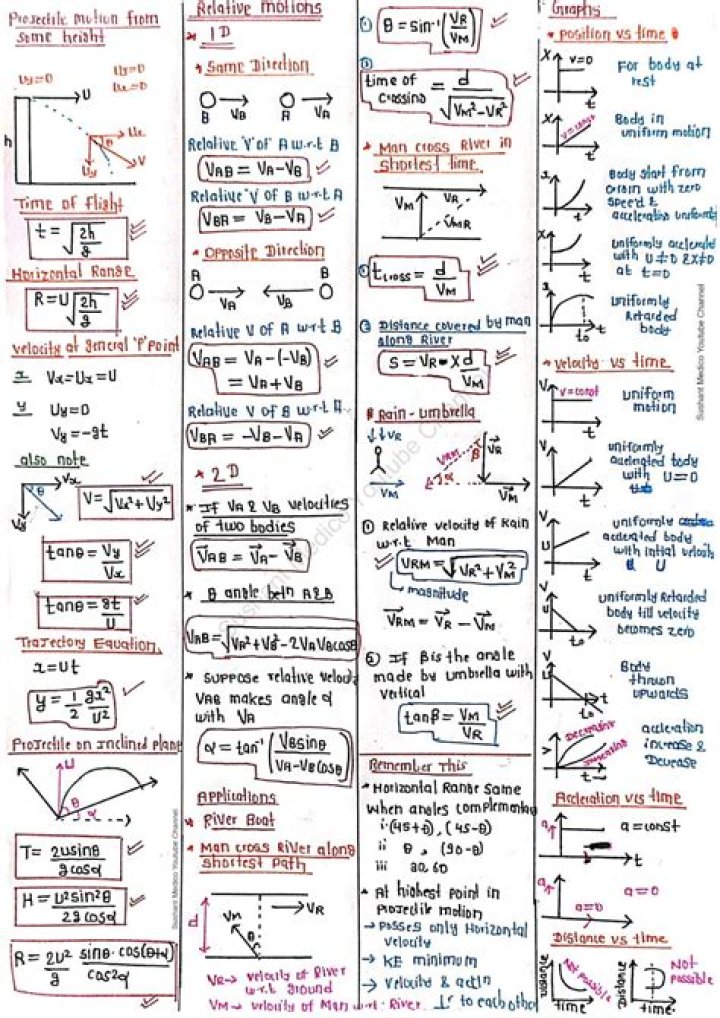 Projectile motion from
some height
Uy=0
Uy=0
Ux=0
U
Ux
Uy
V
h
Time of flight
t = √2h/g
Horizontal Range
R = U√2h/g
velocity at general 'P' point
x Vx = Ux = U
y Uy = 0
Vy = -gt
also note
Vx
θ
V = √Vx² + Vy²
tanθ = Vy/Vx
tanθ = gt/U
Trajectory Equation,
x = Ut
y = 1/2 gx²/U²
Projectile on Inclined plane
U
θ
α
T = 2usinθ/gcosα
H = U²sin²θ/2gcosα
R = 2U²/g sinθ·cos(θ+α)/cos²α
Sushant Medico Youtube Channel
Relative motions
* 1D
* Same Direction
B VB A VA
Relative 'V' of A w.r.t B
VAB = VA - VB
Relative 'V' of B w.r.t A
VBA = VB - VA
* Opposite Direction
A B
VA VB
Relative V of A w.r.t B
VAB = VA - (-VB)
= VA + VB
Relative V of B w.r.t A
VBA = -VB - VA
* 2D
* If VA & VB velocities
of two bodies
VAB = VA - VB
* θ angle betn A & B
VAB = √VA² + VB² - 2VAVBcosθ
* suppose relative velocity
VAB makes angle α
with VA
α = tan⁻¹(VBsinθ/VA-VBcosθ)
Applications
* River Boat
* Man cross River along
shortest path
d
Vm
θ
VR
VR → velocity of River
w.r.t ground
VM → velocity of Man w.r.t. River
① θ = sin⁻¹(VR/VM)
②
time of
crossing = d/√VM²-VR²
* Man cross River in
shortest time.
VM VR
VMR
① tcross = d/VM
② Distance covered by man
along River
S = VR × d/VM
* Rain - Umbrella
VR
VM
VRM
β
α
VR
VM
① Relative velocity of Rain
w.r.t Man
VRM = √VR² + VM²
magnitude
VRM = VR - VM
② If β is the angle
made by umbrella with
vertical
tanβ = VM/VR
Remember This
* Horizontal Range same
when angles complementary
i. (45+θ), (45-θ)
ii θ, (90-θ)
iii 30, 60
* At highest point in
Projectile motion
→ Posses only Horizontal
velocity
→ KE minimum
→ Velocity & accln
⊥r to each other
Graphs
* position vs time
X v=0 t
For body at
rest
X v=const t
Body in
uniform motion
Body start from
origin with zero
speed &
acceleration uniform
X t
uniformly acclerated
with U≠0 & X≠0
at t=0
to t
Uniformly
Retarded
body
* velocity vs time
V v=const t
uniform
motion
V t
uniformly
acclerated body
with U=0
V U t
uniformly
acclerated body
with initial velocity
U
V U to
uniformly Retarded
body till velocity
becomes zero
V U to t
Body
thrown
upwards
V Decreasing Increasing t
accleration
increase &
Decrease
Accleration v/s time
a t
a = const
a a=0
a = 0
Distance vs time
Distance Not possible time
Distance Not
possible
time
Sushant Medico Youtube Channel
Sushant Medico Youtube Channel